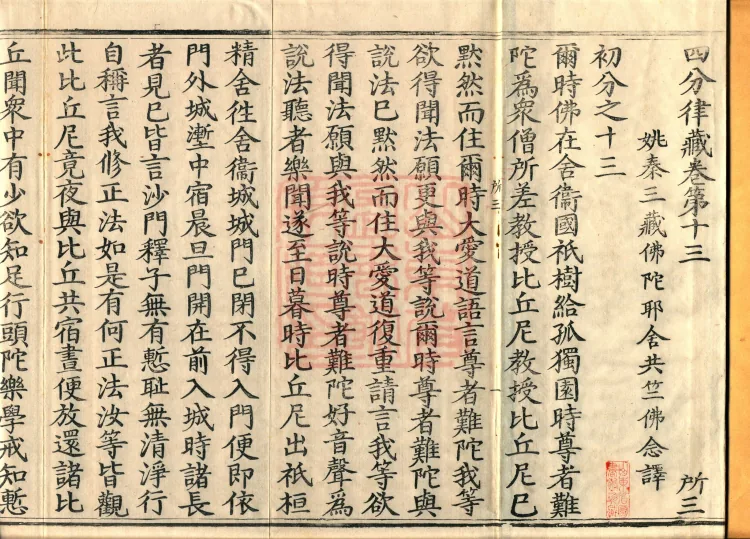 四分律藏卷第十三 所三
姚秦三藏佛陀耶舍共竺佛念譯
初分之十三
爾時佛在舍衞國祇樹給孤獨園時尊者難
陀爲衆僧所差教授比丘尼教授比丘尼已
所三
默然而住爾時大愛道語言尊者難陀我等
欲得聞法願更與我等說爾時尊者難陀與
說法已默然而住大愛道復重請言我等欲
得聞法願與我等說時尊者難陀好音聲爲
說法聽者樂聞遂至日暮時比丘尼出祇桓
精舍徃舍衞城城門已閉不得入門便即依
門外城壍中宿晨旦門開在前入城時諸長
者見已皆言沙門釋子無有慙耻無清淨行
自稱言我修正法如是有何正法汝等皆觀
此比丘尼竟夜與比丘共宿晝便放還諸比
丘聞衆中有少欲知足行頭陀樂學戒知慙